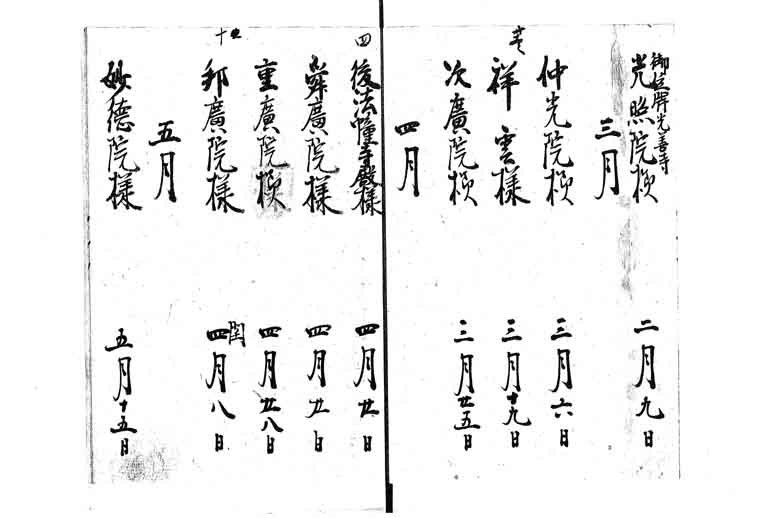 御位牌光善寺
光照院様 二月九日
三月
仲光院様 三月六日
祥雲様 三月十九日
次廣院様 三月廿五日
四月
四
後法幢寺殿様 四月廿日
舜廣院様 四月廿日
重廣院様 四月廿八日
十
邦廣院様 閏四月八日
五月
妙徳院様 五月十五日